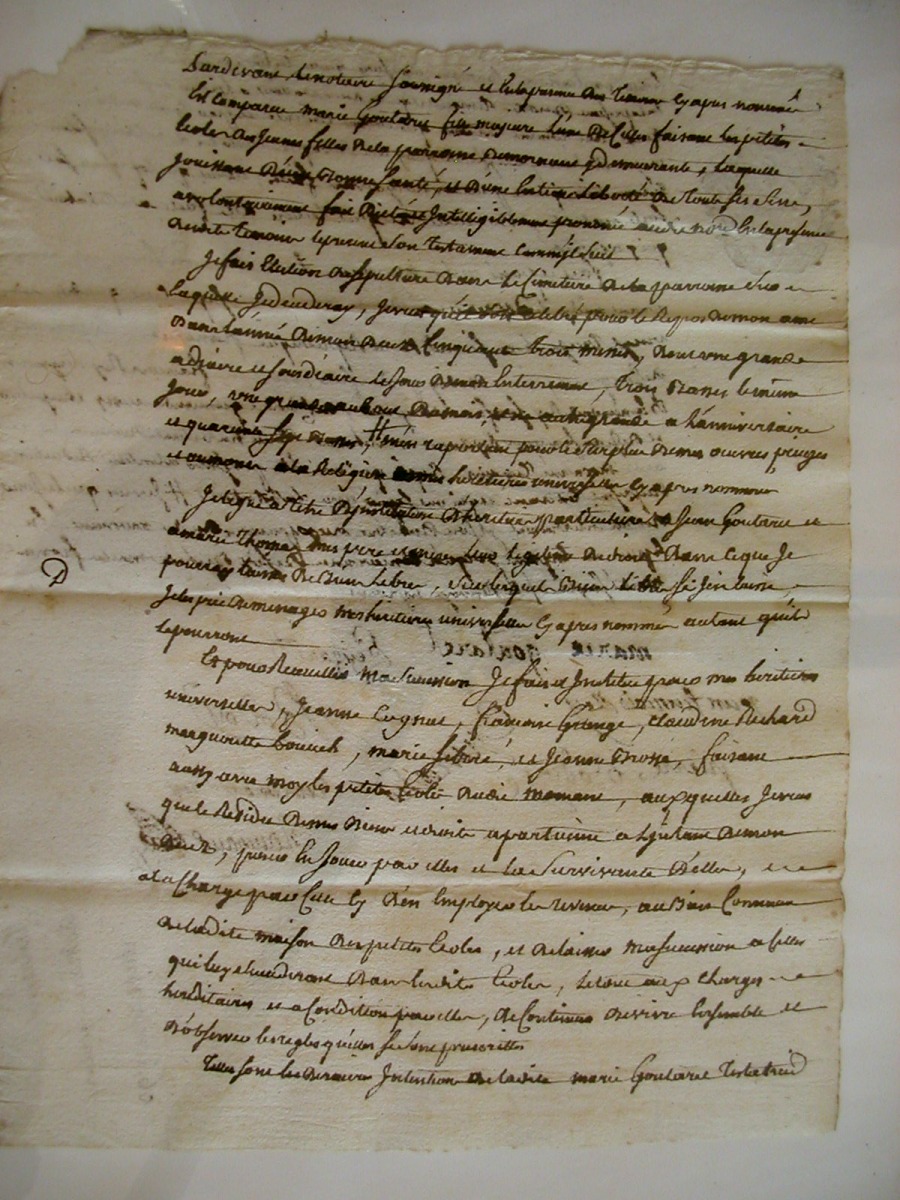 Pardevant le notaire soussigné et en la presence des temoins cy apres nommés
Est comparue marie Goutaret fille majeure l'une de celles faisant les petites
Ecoles des jeunes filles de la paroisse demeurante, laquelle
jouissant d'une bonne santé, et d'une entiere liberté de toute ses sens,
a volontairement fait dicté et intelligiblement prononcé audit notre En la presence
desdits temoins le present son testament comme s'ensuit
Je fais Election de sepulture dans le Cimetiere de la parroisse sur
laquelle je decederay, je veux qu'il soit celebré pour le Repos de mon ame
dans l'année de mon deces Cinquante trois messes, dont une grande
a diacre et soudiacre le jour de mon Enterrement, trois basses le meme
jour, une grande au bout du mois, une autre grande a l'anniversaire
et quarante sept basses, m'en raportant pour le surplus de mes oeuvres pieuses
et aumones a la Religion de mes heritieres universelles cy apres nommées
Je legue a titre d'institution d'heritier particuliere a Jean Goutaret et
a marie Thomas mes pere et mere leur legitime de droit dans ce que je
pourray laisser de bien libre, si j'en laisse
je les prie de menager mes heritieres universelles cy apres nommées autant qu'ils
le pourront
Et pour Recueillir ma succession je fais et institue pour mes heritieres
universelles, Jeanne Cognet, françoise Grange, Claudine Richard
marguerite bouich, marie fibere, et Jeanne brosse, faisant
avec moy les petites Ecoles audit, auxquelles je veux
que le Residu de mes biens et droits apartienne a l'instant de mon
deces, pour en jouir par elles et la survivante d'elles,
a la charge par elles d'En Employer les revenus, au bien Commun
de ladite maison des petites Ecoles, et de laisser ma succession a celles
qui leur succederont dans lesdites Ecoles, le tout aux charges
hereditaires et a Condition par elles, de Continuer de vivre Ensemble et
d'observer les regles qu'elles se sont prescrittes
Telles sont les dernieres Intentions de ladite marie Goutaret Testatrice